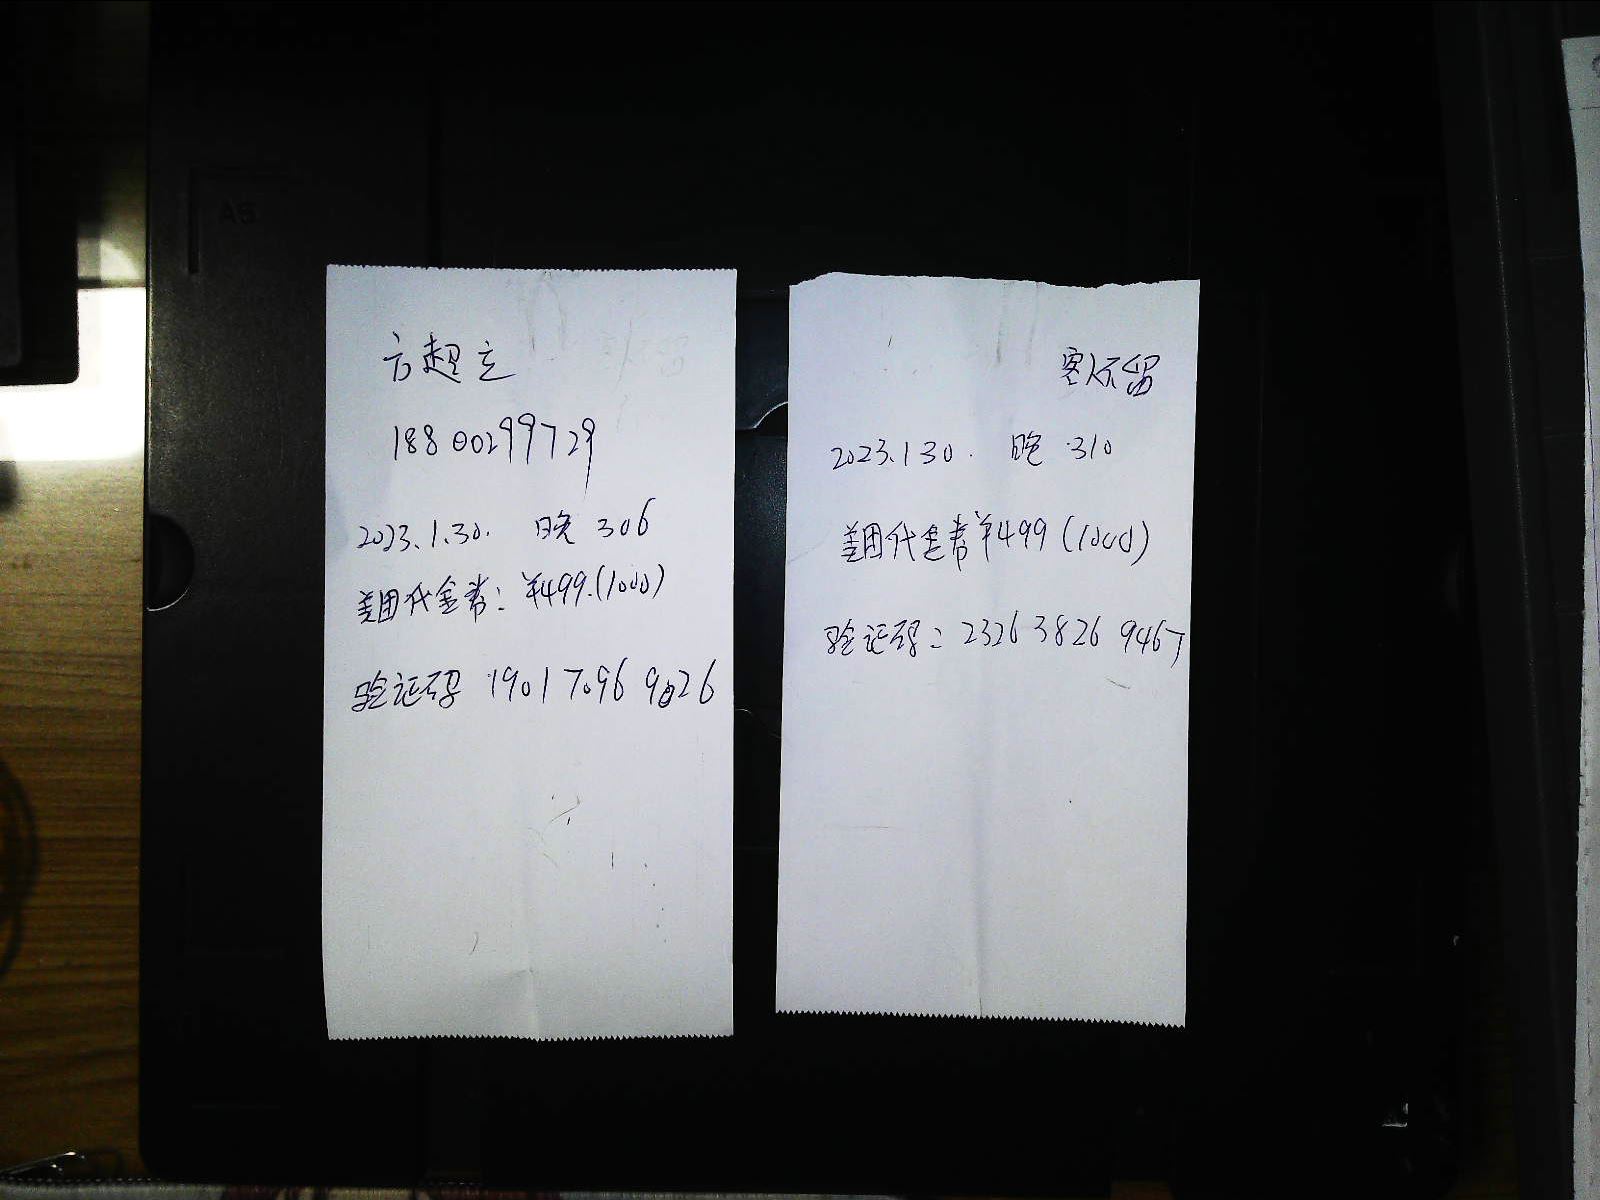 方超立
18800299729
2023.1.30. 晚 306
美团代金券: ¥499.(1000)
验证码 1901 7096 9026
客人不留
2023.1 30. 晚 310
美团代金券¥499 (1000)
验证码: 2326 3826 9467
A5